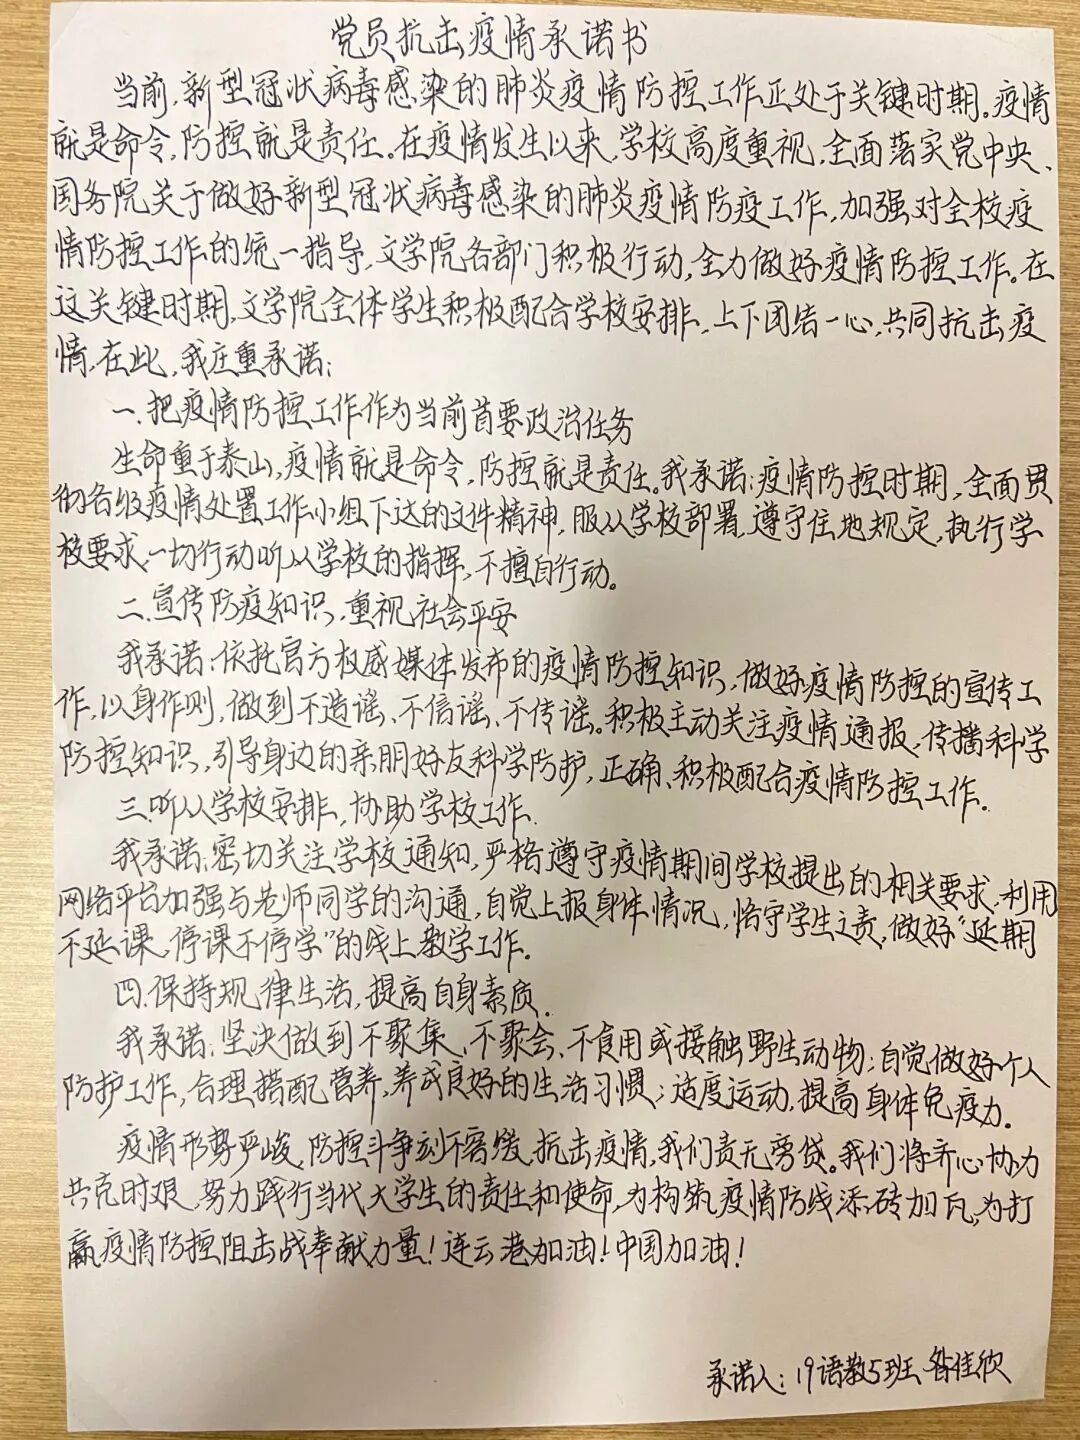 党员抗击疫情承诺书
当前，新型冠状病毒感染的肺炎疫情防控工作正处于关键时期。疫情
就是命令，防控就是责任。在疫情发生以来，学校高度重视，全面落实党中央、
国务院关于做好新型冠状病毒感染的肺炎疫情防疫工作，加强对全校疫
情防控工作的统一指导，文学院各部门积极行动，全力做好疫情防控工作。在
这关键时期，文学院全体学生积极配合学校安排，上下团结一心，共同抗击疫
情，在此，我庄重承诺：
一、把疫情防控工作作为当前首要政治任务
生命重于泰山，疫情就是命令，防控就是责任。我承诺：疫情防控时期，全面贯
彻各级疫情处置工作小组下达的文件精神，服从学校部署，遵守住地规定，执行学
校要求，一切行动听从学校的指挥，不擅自行动。
二、宣传防疫知识，重视社会平安
我承诺：依托官方权威媒体发布的疫情防控知识，做好疫情防控的宣传工
作，以身作则，做到不造谣、不信谣、不传谣。积极主动关注疫情通报，传播科学
防控知识，引导身边的亲朋好友科学防护，正确、积极配合疫情防控工作。
三、听从学校安排，协助学校工作．
我承诺：密切关注学校通知，严格遵守疫情期间学校提出的相关要求，利用
网络平台加强与老师同学的沟通，自觉上报身体情况，恪守学生之责，做好“延期
不延课，停课不停学”的线上教学工作。
四、保持规律生活，提高自身素质．
我承诺：坚决做到不聚集、不聚会、不食用或接触野生动物；自觉做好个人
防护工作，合理搭配营养，养成良好的生活习惯；适度运动，提高身体免疫力。
疫情形势严峻，防控斗争刻不容缓，抗击疫情，我们责无旁贷。我们将齐心协力
共克时艰，努力践行当代大学生的责任和使命，为构筑疫情防线添砖加瓦，为打
赢疫情防控阻击战奉献力量！连云港加油！中国加油！
承诺人：19语教5班 昝佳欣